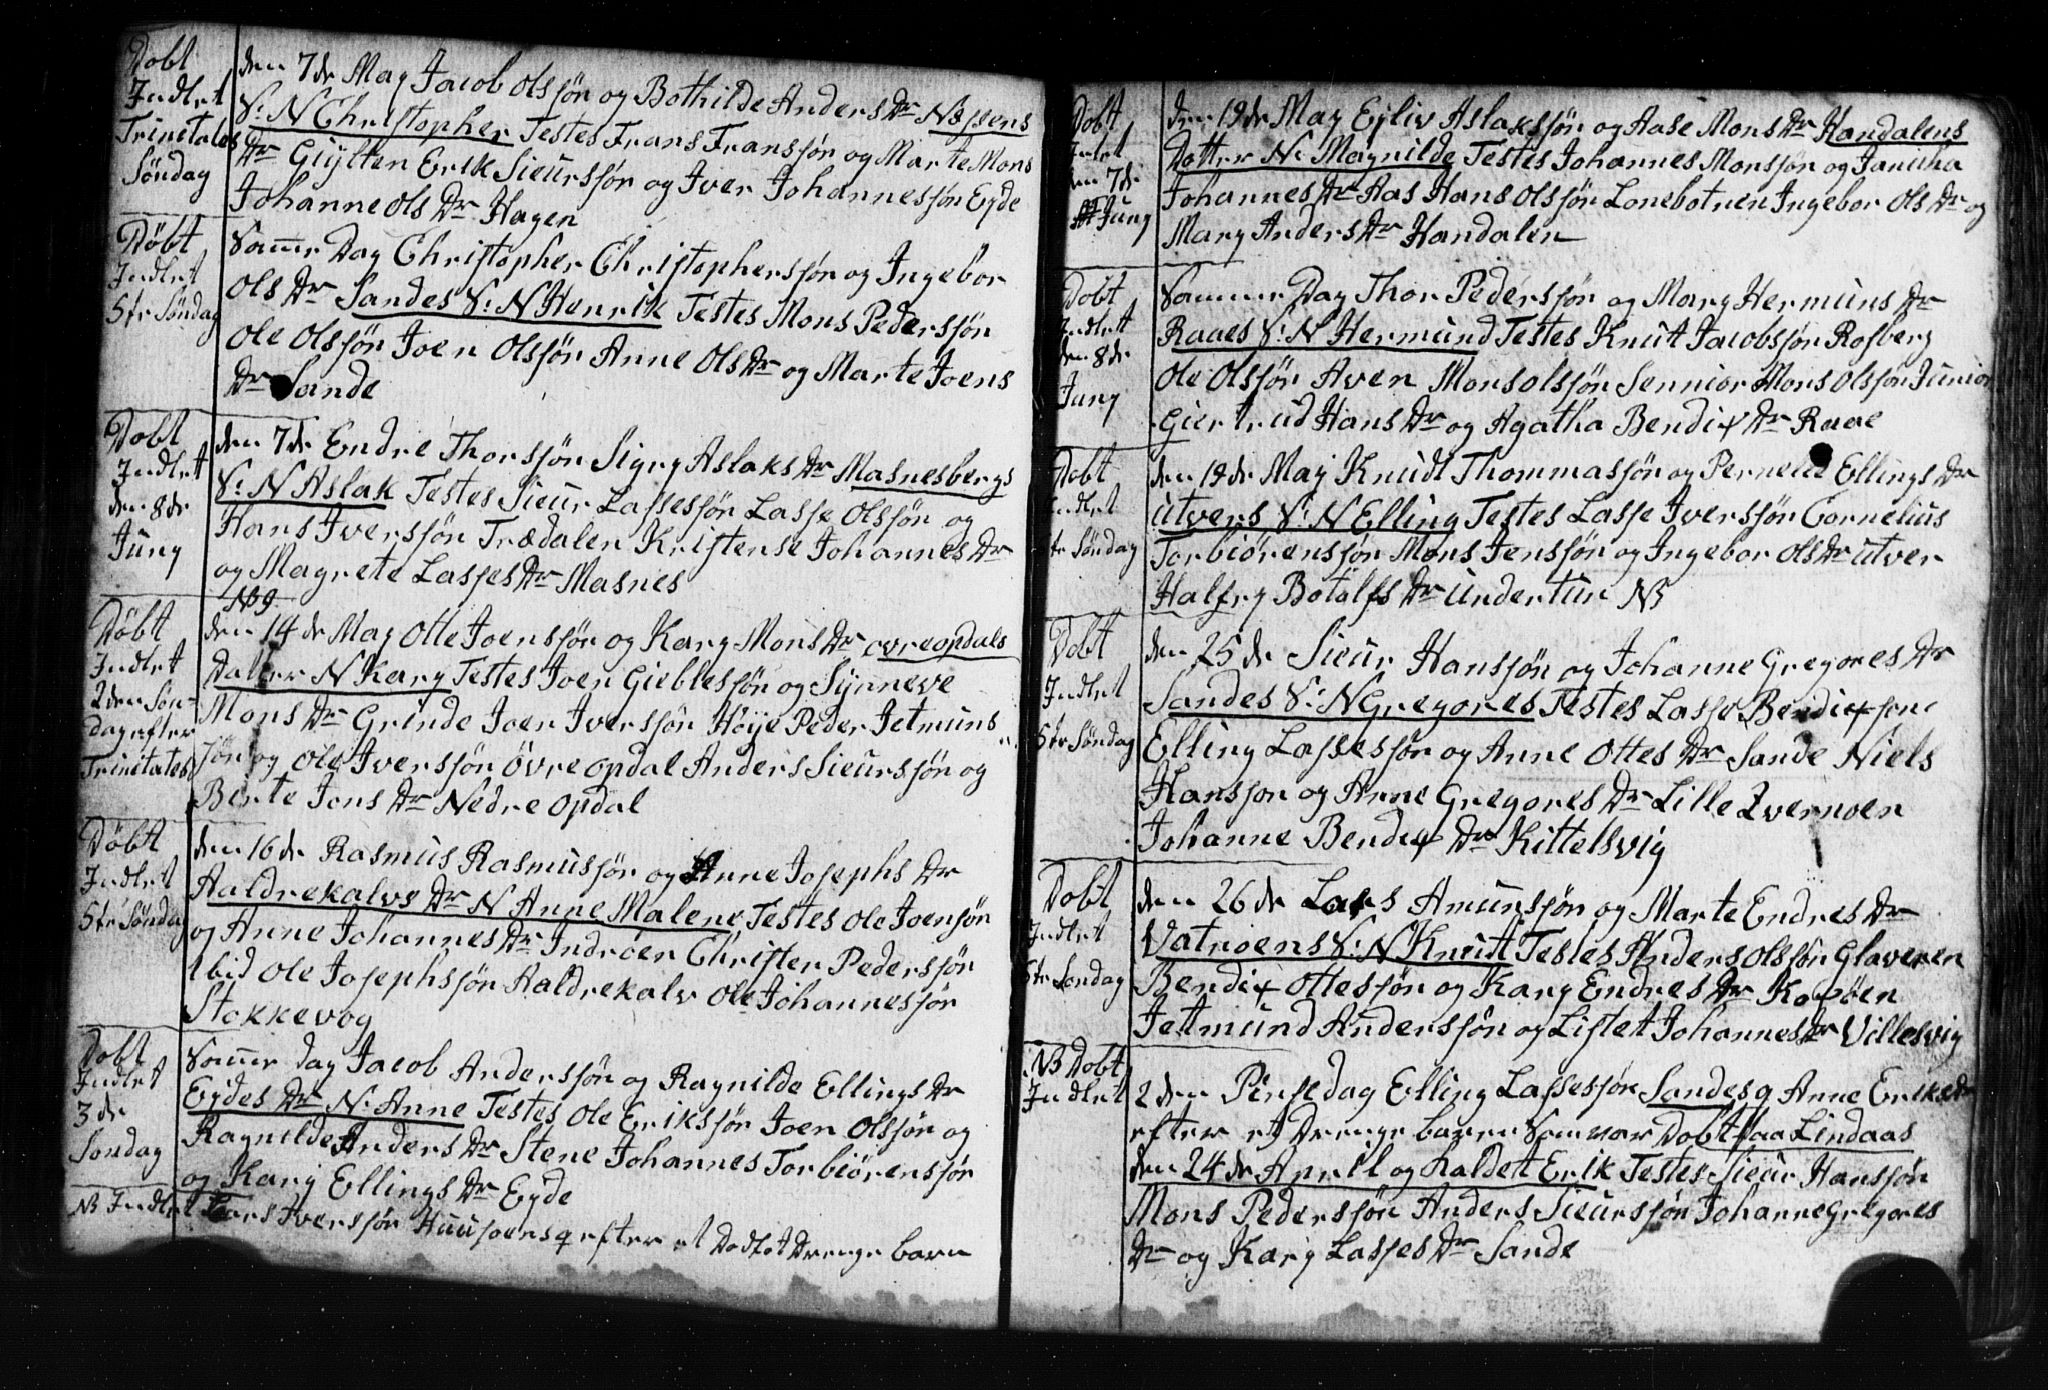 Døbt
Indlet
Trinitates
Søndag
den 7de May Jacob Olssøn og Bothilde Anders Dr Nessens
S: N Christopher Testes Frans Franssøn og Marte Mons
Dr Guylten Erik Sieurssøn og Iver Johannessøn Eyde
Johanne Ols Dr Hagen
Døbt
Indlet
5te Søndag
Samer Dag Christopher Christopherssøn og Ingebor
Ols Dr Sandes S: N Henrik Testes Mons Pederssøn
Ole Olssøn Joen Olssøn Anne Ols Dr og Marte Joens
Dr Sande
Døbt
Indlet
den 8de
Juny
den 7de Endre Thorssøn Sigry Aslaks Dr Masnesbergs
S: N Aslak Testes Sieur Lassessøn Lasse Olssøn og
Hans Iverssøn Trædalen Kristense Johannes Dr
og Magrete Lasses Dr Masnes
Døbt
Indlet
2den Søn-
dag efter
Trinitates
No 9
den 14de May Otte Joenssøn og Kary Mons Dr øvreopdals
Datter N Kary Testes Joen Gieblessøn og Synneve
Mons Dr Grinde Joen Iverssøn Høye Peder Jetmuns
søn og Ole Iverssøn Øvre opdal Anders Sieurssøn og
Berte Jens Dr Nedre Opdal
Døbt
Indlet
5te Søndag
den 16de Rasmus Rasmussøn og Anne Josephs Dr
Aaldrekalvs Dr N Anne Malene Testes Ole Joensøn
og Anne Johannes Dr Indrøen Christen Pederssøn
Ibid Ole Josephssøn Aaldrekalv Ole Johannessøn
Stokkevog
Døbt
Indlet
3de
Søndag
Samer dag Jacob Anderssøn og Ragnilde Ellings Dr
Eydes Dr N: Anne Testes Ole Erikssøn Joen Olssøn og
Ragnilde Anders Dr Stene Johannes Torbiørenssøn
og Kary Ellings Dr Eyde
NB Indlet Lars Iverssøn Huusøens q efter et Dødføt Drenge barn
Døbt
Inlet
den 7de
Juny
den 19de May Eyliv Aslakssøn og Aase Mons Dr Handalens
Dotter N: Magnilde Testes Johannes Monssøn og Janicha
Johannes Dr Aas Hans Olssøn Lonebotnen Ingebor Ols Dr og
Mary Anders Dr Handalen
Døbt
Indlet
den 8de
Juny
Sammer Dag Thor Pederssøn og Mary Hermuns Dr
Raaes S: N Hermund Testes Knut Jacobssøn Rosberg
Ole Olssøn Aven Mons Olssøn Sennior Mons Olssøn Junior
Giertrud Hans Dr og Agatha Bendix Dr Raae
Døbt
Indlet
5te Søndag
den 19de May Knudt Thommassøn og Pernele Ellings Dr
utvers S: N Elling Testes Lasse Iverssøn Cornelius
Torbiørenssøn Mons Jenssøn og Ingebor Ols Dr utver
Halfry Botolfs Dr undertun NB
Døbt
Indlet
5te Søndag
den 25de Sieur Hanssøn og Johanne Gregores Dr
Sandes S: N Gregores Testes Lasse Bendixsøn
Elling Lassessøn og Anne Ottes Dr Sande Niels
Hanssøn og Anne Gregores Dr Lille Qvernøen
Johanne Bendix Dr Kittelsvig
Døbt
Indlet
5te Søndag
den 26de Lars Amunssøn og Marte Endres Dr
Vatnøens S: N Knut Testes Anders Olssøn Glaveren
Bendix Ottessøn og Kary Endres Dr Kopøen
Jetmund Anderssøn og Listet Johannes Dr Villesvig
NB Døbt
Indlet
2den Pinsedag Elling Lassessøn Sandes q Anne Eriks Dr
efter et Drenge baren Som var Døbt paa Lindaas
den 24de Aprill og kaldet Erik Testes Sieur Hanssøn
Mons Pederssøn Anders Sieurssøn Johanne Gregores
Dr og Kary Lasses Dr Sande